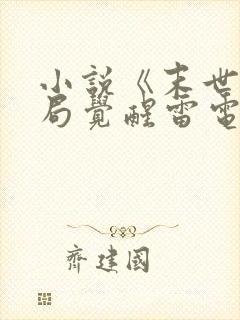 小說《末世
局覺醒雷電
齊建國